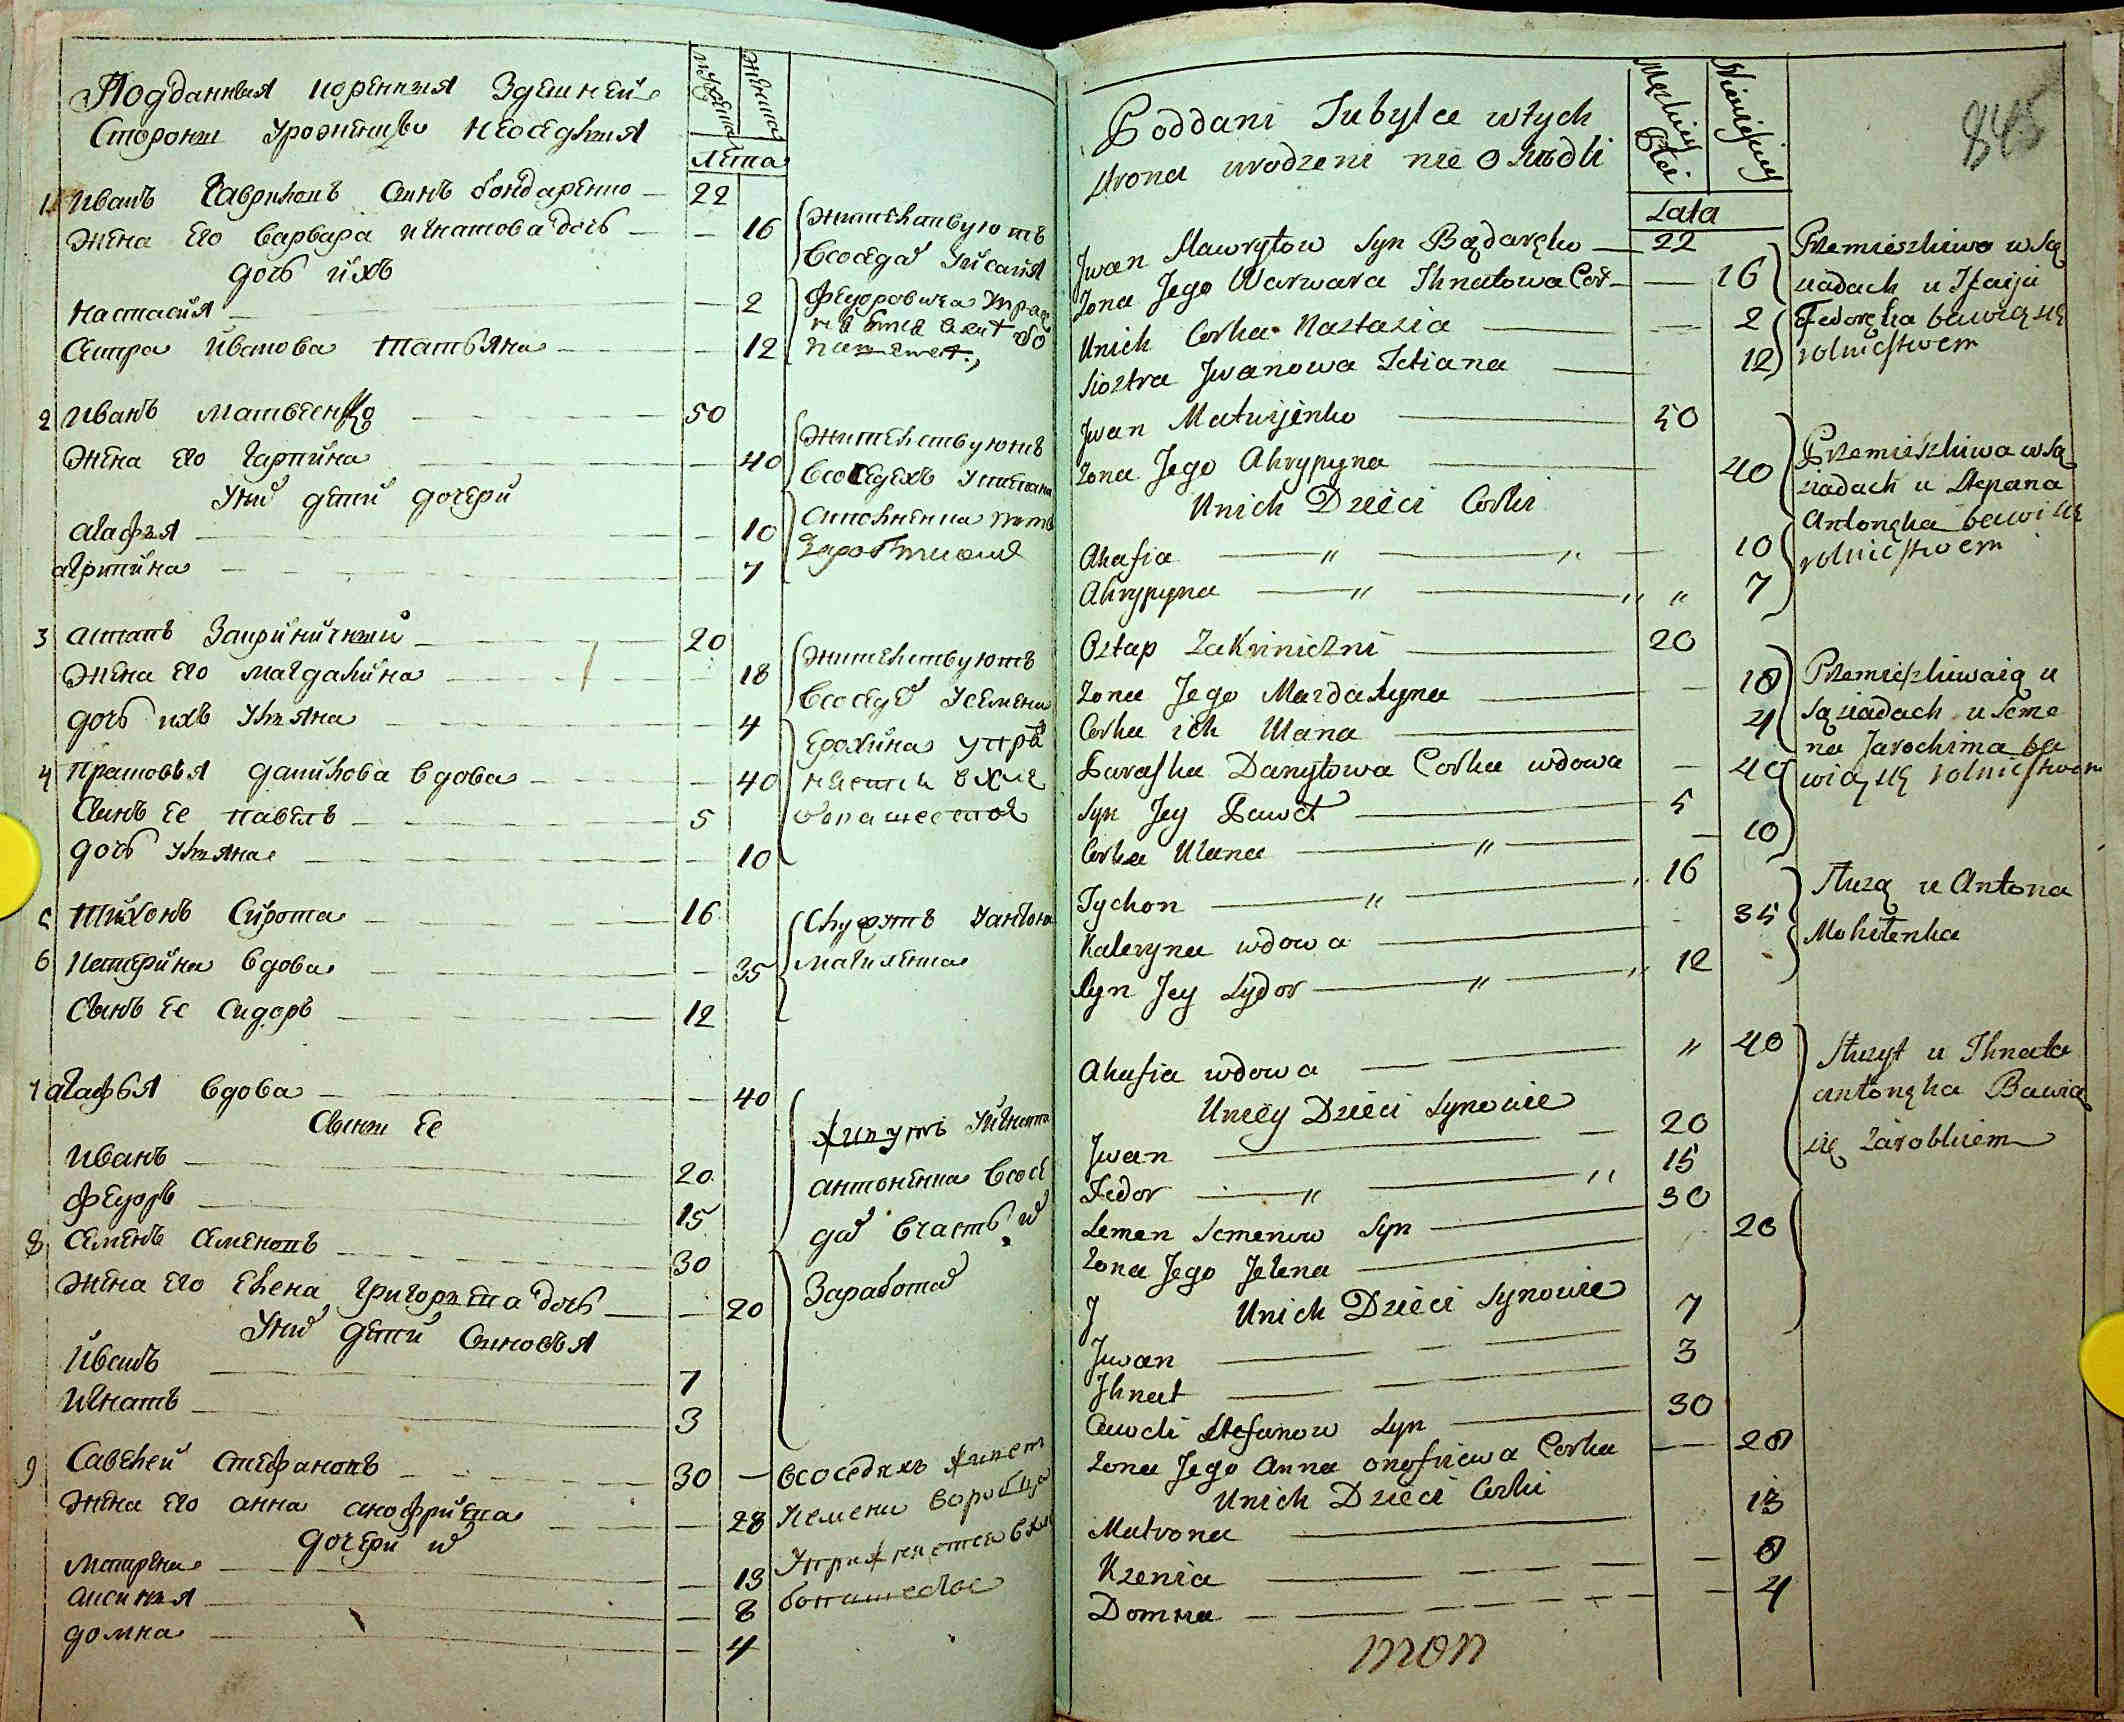 Подданныя коренныя Здешней
Стороны Урожинцы неоседлыя
мужеска
женска
Лета
1 Иванъ Гавриловъ Сынъ бондаренко — 22
жена его варвара игнатова дочь — — 16
дочь ихъ
настасия — — 2
Сестра Иванова татьяна — — 12
жителствуютъ
в соседах у исаия
федоровича
2 Иванъ матвеенко — 50
жена его гарпина — — 40
у них дети дочери
агафия — — 10
агрипина — — 7
жителствуютъ
в соседехъ у степана
3 астапъ Закриничный — 20
жена его магдалина — — 18
дочь ихъ улияна — — 4
4 прасковья данилова вдова — — 40
Сынъ ее павелъ — 5
дочь улияна — — 10
жителствуютъ
в соседах у семена
ерохина
5 тихонъ Сирота — 16
6 катерина вдова — — 35
Сынъ ее сидоръ — 12
Служутъ у антона
магиленка
7 агафья вдова — — 40
Сыны ее
Иванъ — 20
федоръ — 15
8 Семенъ Семеновъ — 30
жена его елена григорьева дочь — — 20
у них дети Сыновья
Иванъ — 7
Игнатъ — 3
живутъ у игната
антоненка в сосе
дах
заработках
9 Савелей стефановъ — 30 —
жена его анна анофриева — — 28
дочери их
матрена — — 13
аксиния — — 8
домна — — 4
в соседяхъ живет
Семена воробца
845
Poddani Tubylce w tych
strona urodzeni nie osiedli
Męzkiey Płci
Niewieściey
Lata
Jwan Hawryłow Syn Bądaręko — 22
Zona Jego Warwara Ihnatowa Cor — — 16
Unich Corka Nastazia — — 2
Siostra Jwanowa Tetiana — 12
Przemieszkiwa w Są
siadach u Izaija
Fedoręka bawią się
rolnictwem
Jwan Matwijęnko — 50
Zona Jego Ahrypyna — 40
Unich Dzieci Corki
Ahafia — " — " — 10
Ahrypyna — " — " " 7
Przemieszkiwa w Są
siadach u Stepana
Antonęka bawi się
rolnictwem
Ostap Zakriniczni — 20
Zona Jego Mazdałyna — — 18
Corka ich Ulana — 4
Paraska Danyłowa Corka wdowa — 40
Syn Jey Paweł — 5
Corka Ulana — " — — 10
Przemieszkiwaią u
Sąsiadach u Seme
na Jarochima ba
wią się rolnictwem
Tychon — " — " 16
Kateryna wdowa — 35
Syn Jey Sydor — " — " 12
Służą u Antona
Mohilenka
Ahafia wdowa — — " 40
Unięy Dzieci Synowie
Jwan — 20
Fedor — " — " 15
Semen Semenow Syn — 30
Zona Jego Jelena — 20
J Unich Dzieci Synowie
Jwan — 7
Ihnat — 3
Służył u Ihnata
antonęka Bawią
się zarobkiem
Saweli Stefanow Syn — 30
Zona Jego Anna onofriewa Corka — 28
Unich Dzieci Corki
Matrona — 13
Xzenia — — 8
Domna — — 4